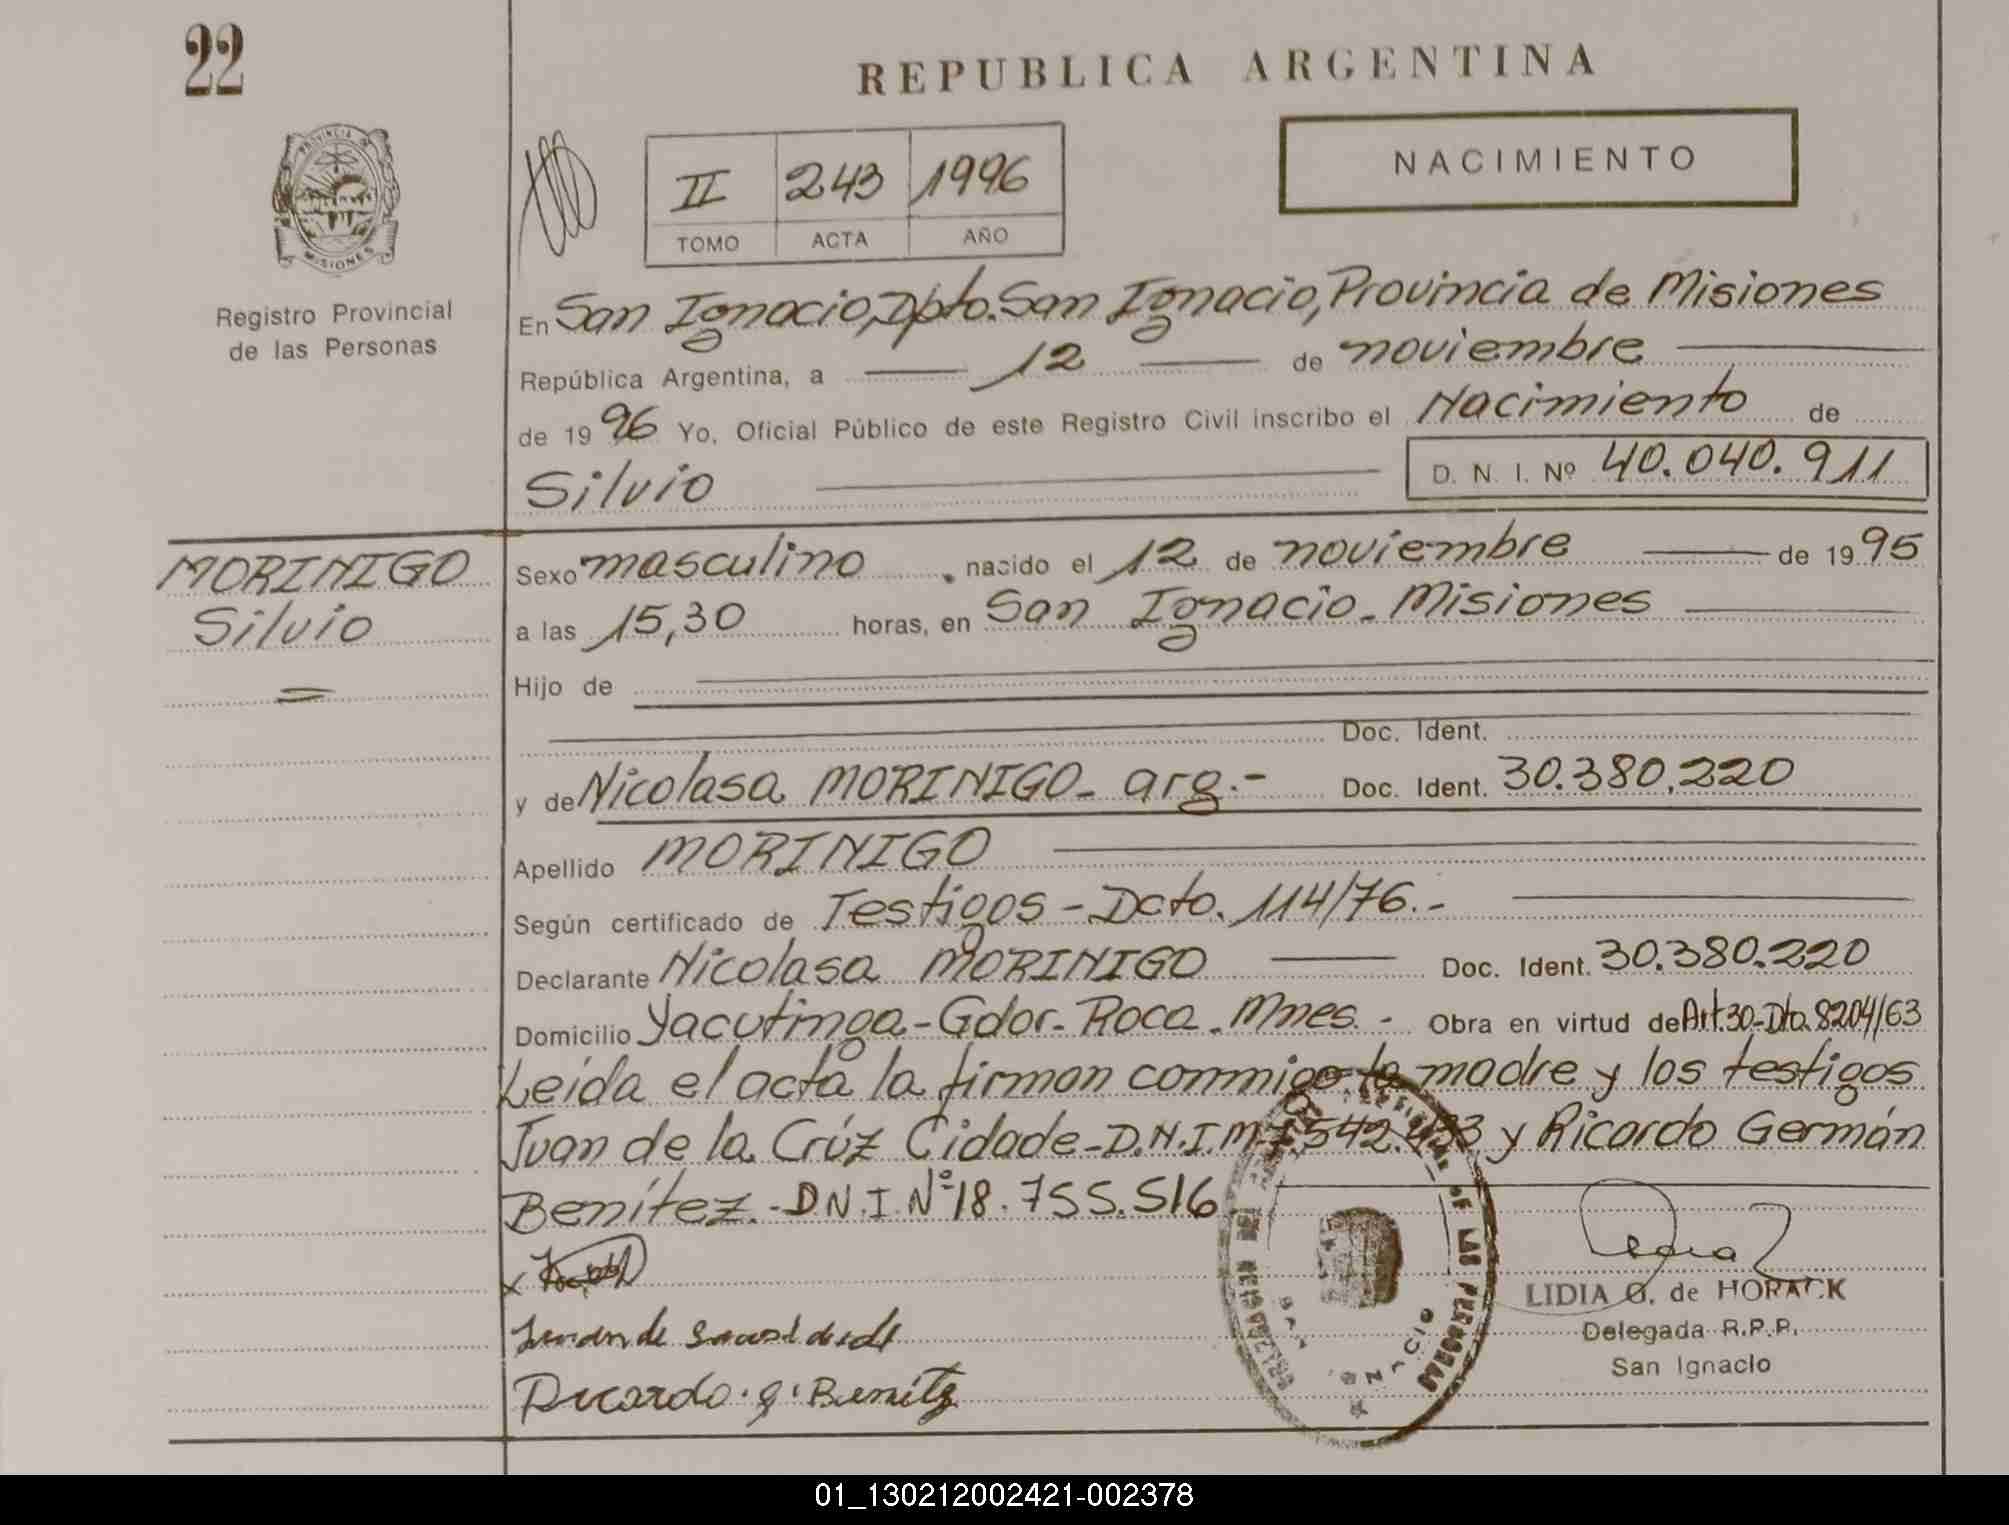 22
REPUBLICA ARGENTINA
NACIMIENTO
II 243 1996
TOMO ACTA AÑO
PROVINCIA DE
MISIONES
Registro Provincial
de las Personas
En San Ignacio, Dpto. San Ignacio, Provincia de Misiones
República Argentina, a 12 de noviembre
de 1996 Yo, Oficial Público de este Registro Civil inscribo el Nacimiento de
Silvio D. N. I. Nº 40.040.911
MORINIGO
Silvio
Sexo masculino, nacido el 12 de noviembre de 1995
a las 15,30 horas, en San Ignacio - Misiones
Hijo de
Doc. Ident.
y de Nicolasa MORINIGO - arg.- Doc. Ident. 30.380.220
Apellido MORINIGO
Según certificado de Testigos - Dcto. 114/76.-
Declarante Nicolasa MORINIGO Doc. Ident. 30.380.220
Domicilio Yacutinga - Gdor. Roca - Mnes. - Obra en virtud de Art. 30 - Dto. 8204/63
Leída el acta la firman conmigo la madre y los testigos
Juan de la Crúz Cidade - D.N.I. M 7.542. y Ricardo Germán
Benítez. - D.N.I. Nº 18.755.516
x
Juan de
Ricardo. g. Benitez
LIDIA G. de HORACK
Delegada R.P.P.
San Ignacio
DE LAS PERSONAS
SAN IGNACIO
01_130212002421-002378